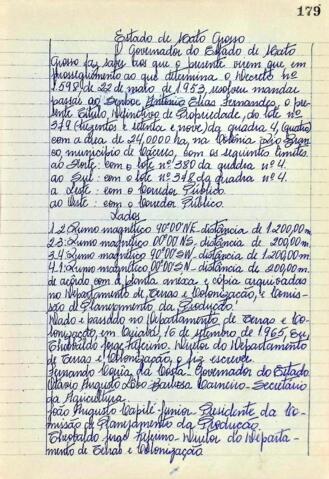 179
Estado de Mato Grosso
O Governador do Estado de Mato
Grosso faz saber aos que o presente virem que em
prosseguimento ao que determina o Decreto nº
1.598, de 22 de maio de 1953, resolveu mandar
passar ao Senhor Antônio Elias Fernandes, o pre-
sente Título Definitivo de Propriedade, do lote nº
379 (trezentos e setenta e nove) da quadra 4, (quatro)
com a área de 24,0000 ha, na Colônia Rio Bran-
co, município de Cáceres, com os seguintes limites:
ao Norte: com o lote nº 380 da quadra nº 4.
ao Sul: com o lote nº 378 da quadra nº 4.
a Leste: com o Corredor Público.
ao Oeste: com o Corredor Público.
Lados
1.2 Rumo magnético 90º00'NE - distância de 1.200,00m.
2.3: Rumo magnético 00º00'NS - distância de 200,00m.
3.4 Rumo magnético 90º00'SW - distância de 1.200,00m.
4.1: Rumo magnético 00º00'SN - distância de 200,00m.
de acordo com a planta anexa e cópia arquivadas
no Departamento de Terras e Colonização, e Comis-
são de Planejamento da Produção.
Dado e passado no Departamento de Terras e Co-
lonização, em Cuiabá, 16 de setembro de 1965, Eu,
Theobaldo Jorge, Diretor do Departamento
de Terras e Colonização, o fiz escrever.
Fernando Corrêa da Costa - Governador do Estado
Otávio Augusto Barbosa Carneiro - Secretário
da Agricultura.
João Augusto Capilé Júnior. Presidente da Co-
missão de Planejamento da Produção.
Theobaldo Jorge - Diretor do Departa-
mento de Terras e Colonização.